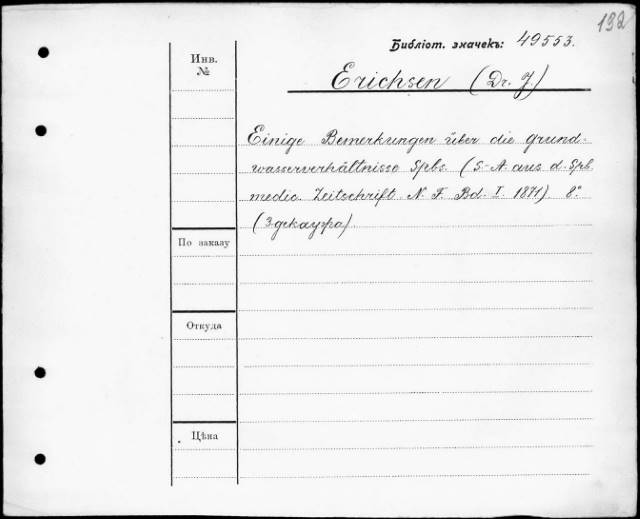 132
Библіот. значекъ: 49553.
Инв.
№
Erichsen (Dr. J.)
Einige Bemerkungen über die Grund-
wasserverhältnisse Spbs. (S.-A. aus d. Spb.
medic. Zeitschrift. N. F. Bd. I. 1871) 8°
(3 декабря)
По заказу
Откуда
Цѣна